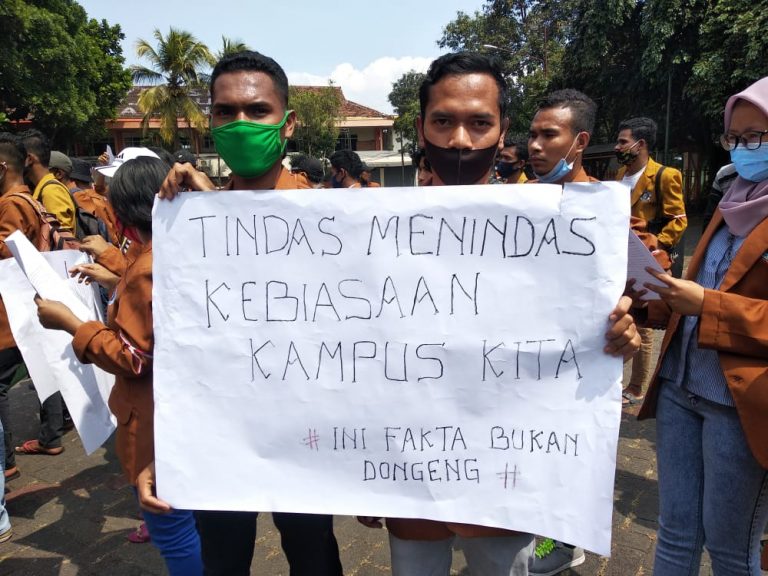 TINDAS MENINDAS
KEBIASAAN
KAMPUS KITA
# INI FAKTA BUKAN
DONGENG #